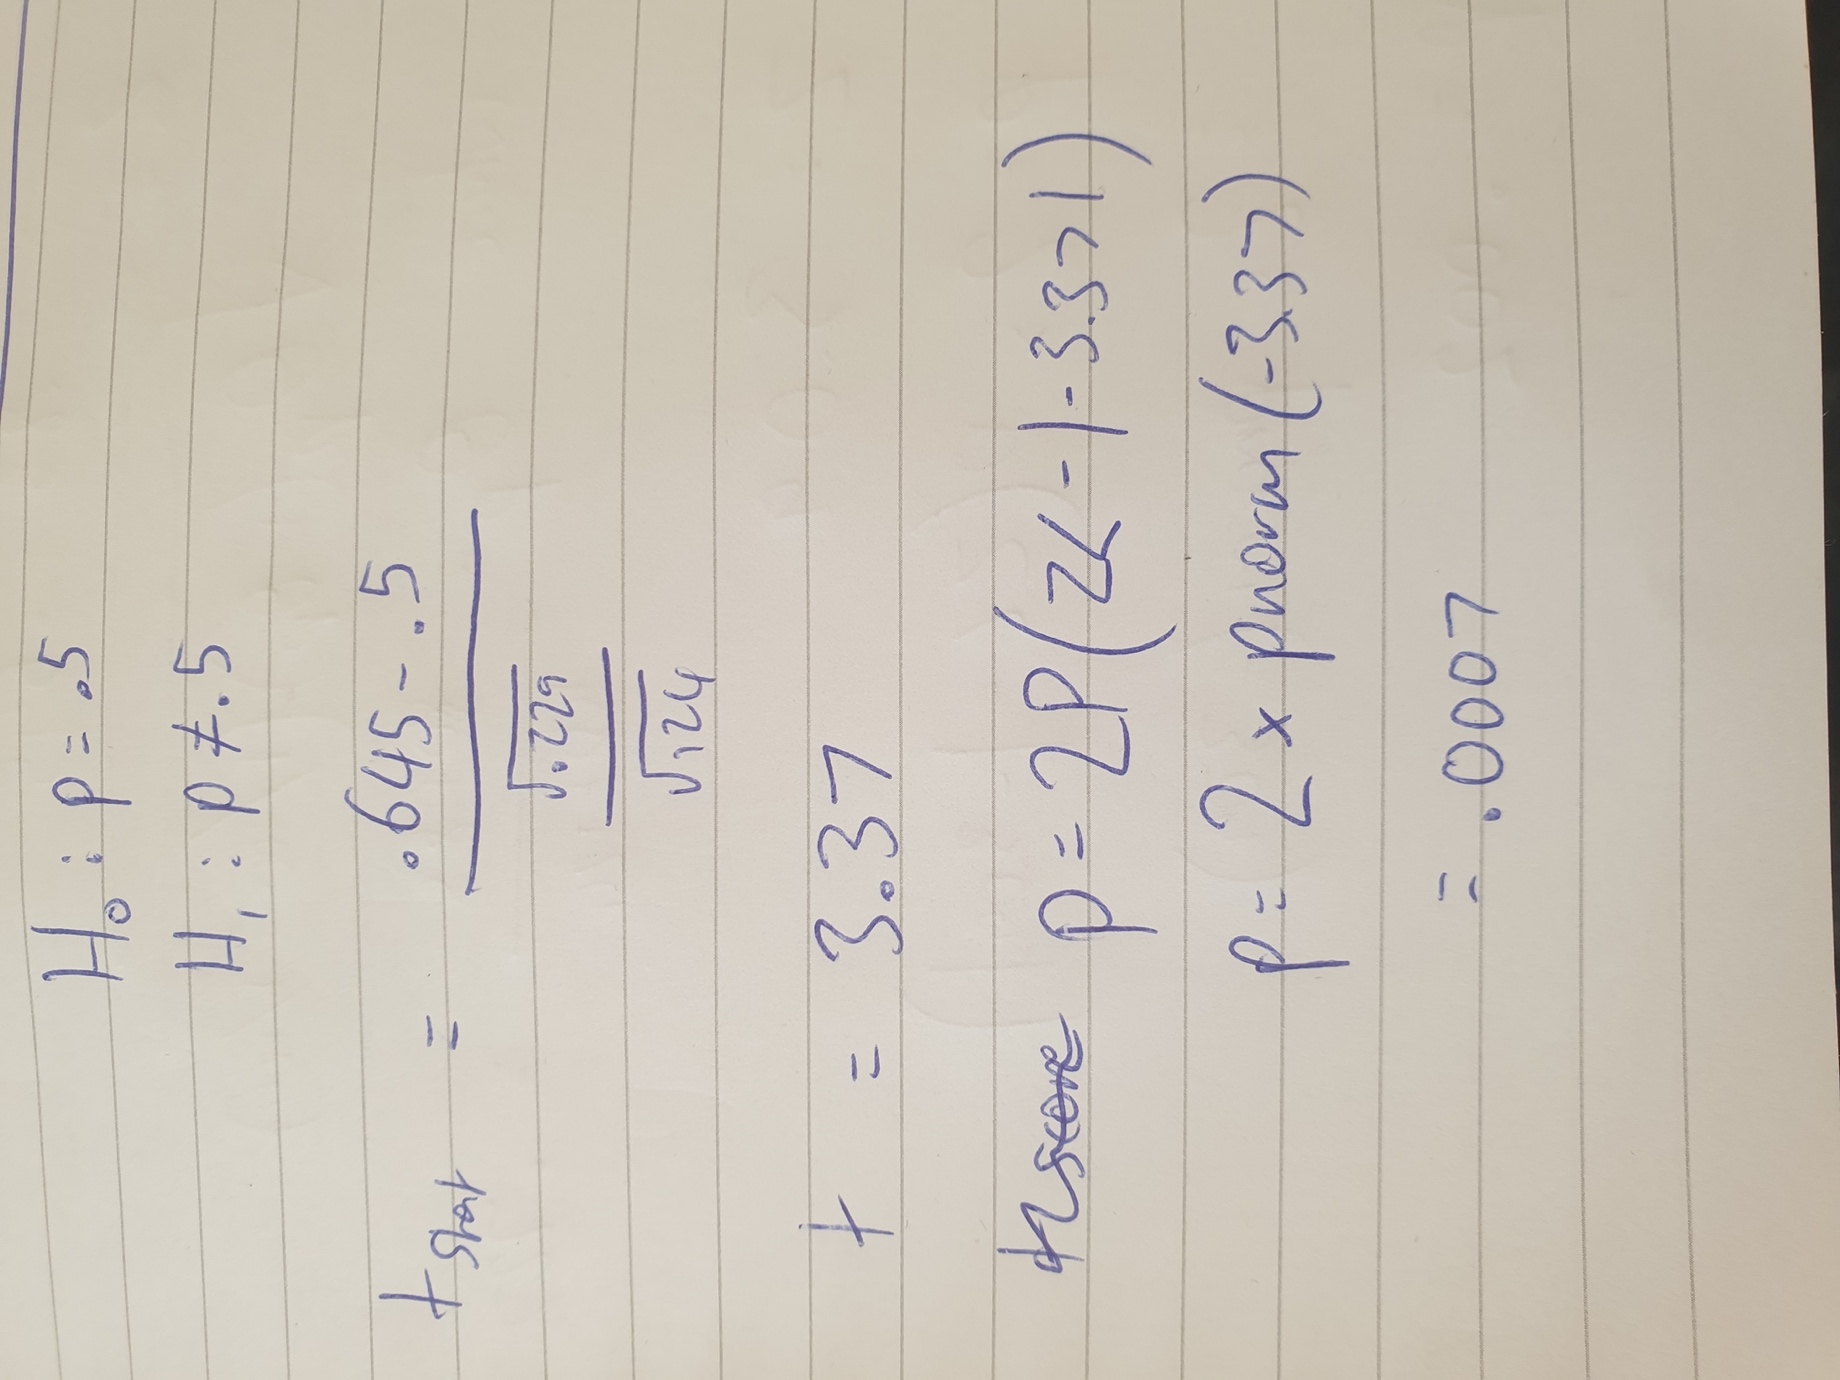 H₀ : p = .5
H₁ : p ≠ .5
t stat = .645 - .5
√.229
√124
t = 3.37
p = 2P(Z < - |-3.37|)
p = 2 × pnorm(-3.37)
= .0007